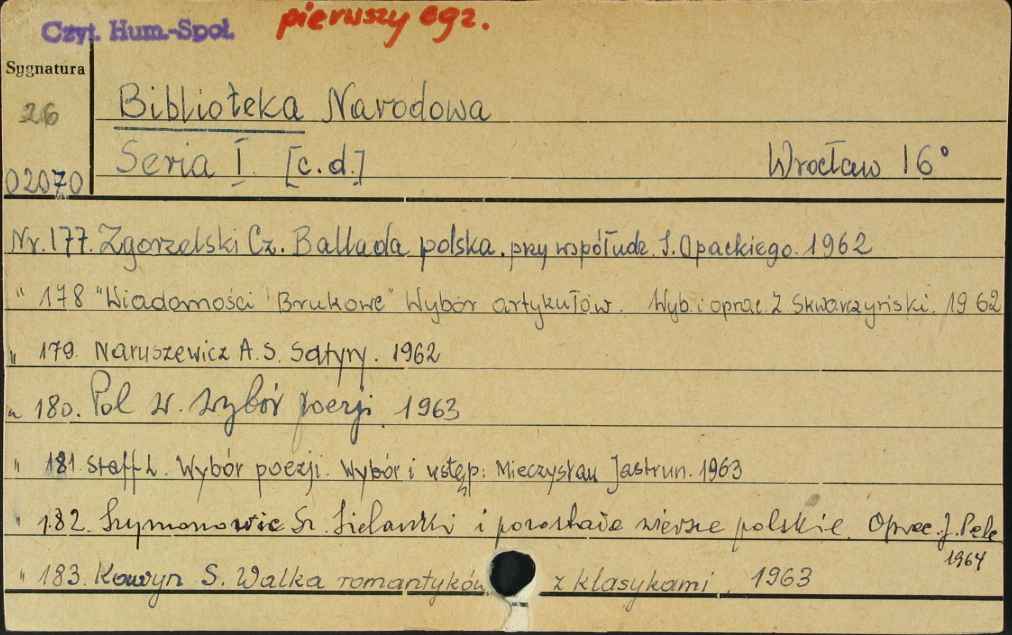 Czyt. Hum.-Społ. pierwszy egz.
Sygnatura
26 Biblioteka Narodowa
02070 Seria I. [c.d.] Wrocław 16°
Nr. 177. Zgorzelski Cz. Ballada polska. przy współudz. I. Opackiego. 1962
" 178 "Wiadomości Brukowe" Wybór artykułów. Wyb. i oprac. Z Skwarczyński. 1962
" 179. Naruszewicz A. S. Satyry. 1962
" 180. Pol W. Wybór poezji 1963
" 181. Staff L. Wybór poezji. Wybór i wstęp: Mieczysław Jastrun. 1963
" 182. Szymonowic Sz. Sielanki i pozostałe wiersze polskie. Oprac. J. Pelc
1964
" 183. Kawyn S. Walka romantyków z klasykami. 1963